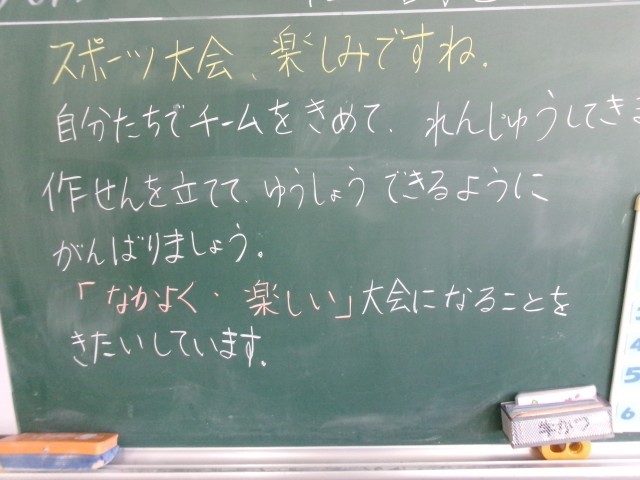 スポーツ大会、楽しみですね.
自分たちでチームをきめて、れんじゅうしてきま
作せんを立てて、ゆうしょうできるように
がんばりましょう。
「なかよく・楽しい」大会になることを
きたいしています.
4
5
6